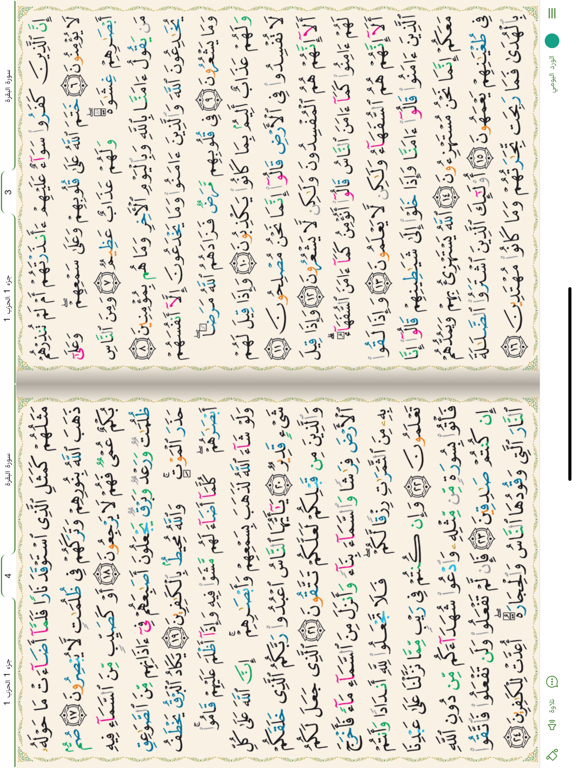 سورة البقرة
3
جزء 1 الحزب 1
إِنَّ ٱلَّذِينَ كَفَرُوا۟ سَوَآءٌ عَلَيْهِمْ ءَأَنذَرْتَهُمْ أَمْ لَمْ تُنذِرْهُمْ
لَا يُؤْمِنُونَ ٦ خَتَمَ ٱللَّهُ عَلَىٰ قُلُوبِهِمْ وَعَلَىٰ سَمْعِهِمْ ۖ وَعَلَىٰٓ
أَبْصَـٰرِهِمْ غِشَـٰوَةٌ ۖ وَلَهُمْ عَذَابٌ عَظِيمٌ ٧ وَمِنَ ٱلنَّاسِ
مَن يَقُولُ ءَامَنَّا بِٱللَّهِ وَبِٱلْيَوْمِ ٱلْـَٔاخِرِ وَمَا هُم بِمُؤْمِنِينَ ٨
يُخَـٰدِعُونَ ٱللَّهَ وَٱلَّذِينَ ءَامَنُوا۟ وَمَا يَخْدَعُونَ إِلَّآ أَنفُسَهُمْ
وَمَا يَشْعُرُونَ ٩ فِى قُلُوبِهِم مَّرَضٌ فَزَادَهُمُ ٱللَّهُ مَرَضًا ۖ
وَلَهُمْ عَذَابٌ أَلِيمٌۢ بِمَا كَانُوا۟ يَكْذِبُونَ ١٠ وَإِذَا قِيلَ لَهُمْ
لَا تُفْسِدُوا۟ فِى ٱلْأَرْضِ قَالُوٓا۟ إِنَّمَا نَحْنُ مُصْلِحُونَ ١١
أَلَآ إِنَّهُمْ هُمُ ٱلْمُفْسِدُونَ وَلَـٰكِن لَّا يَشْعُرُونَ ١٢ وَإِذَا قِيلَ
لَهُمْ ءَامِنُوا۟ كَمَآ ءَامَنَ ٱلنَّاسُ قَالُوٓا۟ أَنُؤْمِنُ كَمَآ ءَامَنَ ٱلسُّفَهَآءُ ۗ
أَلَآ إِنَّهُمْ هُمُ ٱلسُّفَهَآءُ وَلَـٰكِن لَّا يَعْلَمُونَ ١٣ وَإِذَا لَقُوا۟
ٱلَّذِينَ ءَامَنُوا۟ قَالُوٓا۟ ءَامَنَّا وَإِذَا خَلَوْا۟ إِلَىٰ شَيَـٰطِينِهِمْ قَالُوٓا۟ إِنَّا
مَعَكُمْ إِنَّمَا نَحْنُ مُسْتَهْزِءُونَ ١٤ ٱللَّهُ يَسْتَهْزِئُ بِهِمْ وَيَمُدُّهُمْ
فِى طُغْيَـٰنِهِمْ يَعْمَهُونَ ١٥ أُو۟لَـٰٓئِكَ ٱلَّذِينَ ٱشْتَرَوُا۟ ٱلضَّلَـٰلَةَ
بِٱلْهُدَىٰ فَمَا رَبِحَت تِّجَـٰرَتُهُمْ وَمَا كَانُوا۟ مُهْتَدِينَ ١٦
سورة البقرة
4
جزء 1 الحزب 1
مَثَلُهُمْ كَمَثَلِ ٱلَّذِى ٱسْتَوْقَدَ نَارًا فَلَمَّآ أَضَآءَتْ مَا حَوْلَهُۥ
ذَهَبَ ٱللَّهُ بِنُورِهِمْ وَتَرَكَهُمْ فِى ظُلُمَـٰتٍ لَّا يُبْصِرُونَ ١٧ صُمٌّۢ
بُكْمٌ عُمْىٌ فَهُمْ لَا يَرْجِعُونَ ١٨ أَوْ كَصَيِّبٍ مِّنَ ٱلسَّمَآءِ فِيهِ
ظُلُمَـٰتٌ وَرَعْدٌ وَبَرْقٌ يَجْعَلُونَ أَصَـٰبِعَهُمْ فِىٓ ءَاذَانِهِم مِّنَ ٱلصَّوَٰعِقِ
حَذَرَ ٱلْمَوْتِ ۚ وَٱللَّهُ مُحِيطٌۢ بِٱلْكَـٰفِرِينَ ١٩ يَكَادُ ٱلْبَرْقُ يَخْطَفُ
أَبْصَـٰرَهُمْ ۖ كُلَّمَآ أَضَآءَ لَهُم مَّشَوْا۟ فِيهِ وَإِذَآ أَظْلَمَ عَلَيْهِمْ قَامُوا۟ ۚ
وَلَوْ شَآءَ ٱللَّهُ لَذَهَبَ بِسَمْعِهِمْ وَأَبْصَـٰرِهِمْ ۚ إِنَّ ٱللَّهَ عَلَىٰ كُلِّ
شَىْءٍ قَدِيرٌ ٢٠ يَـٰٓأَيُّهَا ٱلنَّاسُ ٱعْبُدُوا۟ رَبَّكُمُ ٱلَّذِى خَلَقَكُمْ
وَٱلَّذِينَ مِن قَبْلِكُمْ لَعَلَّكُمْ تَتَّقُونَ ٢١ ٱلَّذِى جَعَلَ لَكُمُ
ٱلْأَرْضَ فِرَٰشًا وَٱلسَّمَآءَ بِنَآءً وَأَنزَلَ مِنَ ٱلسَّمَآءِ مَآءً فَأَخْرَجَ
بِهِۦ مِنَ ٱلثَّمَرَٰتِ رِزْقًا لَّكُمْ ۖ فَلَا تَجْعَلُوا۟ لِلَّهِ أَندَادًا وَأَنتُمْ
تَعْلَمُونَ ٢٢ وَإِن كُنتُمْ فِى رَيْبٍ مِّمَّا نَزَّلْنَا عَلَىٰ عَبْدِنَا
فَأْتُوا۟ بِسُورَةٍ مِّن مِّثْلِهِۦ وَٱدْعُوا۟ شُهَدَآءَكُم مِّن دُونِ ٱللَّهِ
إِن كُنتُمْ صَـٰدِقِينَ ٢٣ فَإِن لَّمْ تَفْعَلُوا۟ وَلَن تَفْعَلُوا۟ فَٱتَّقُوا۟
ٱلنَّارَ ٱلَّتِى وَقُودُهَا ٱلنَّاسُ وَٱلْحِجَارَةُ ۖ أُعِدَّتْ لِلْكَـٰفِرِينَ ٢٤
الورد اليومي
تلاوة